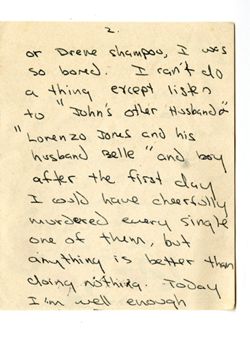 2.
or Drene shampoo, I was
so bored. I can't do
a thing except listen
to "John's other Husband"
"Lorenzo Jones and his
husband Belle" and boy
after the first day
I could have cheerfully
murdered every single
one of them, but
anything is better than
doing nothing. Today
I'm well enough